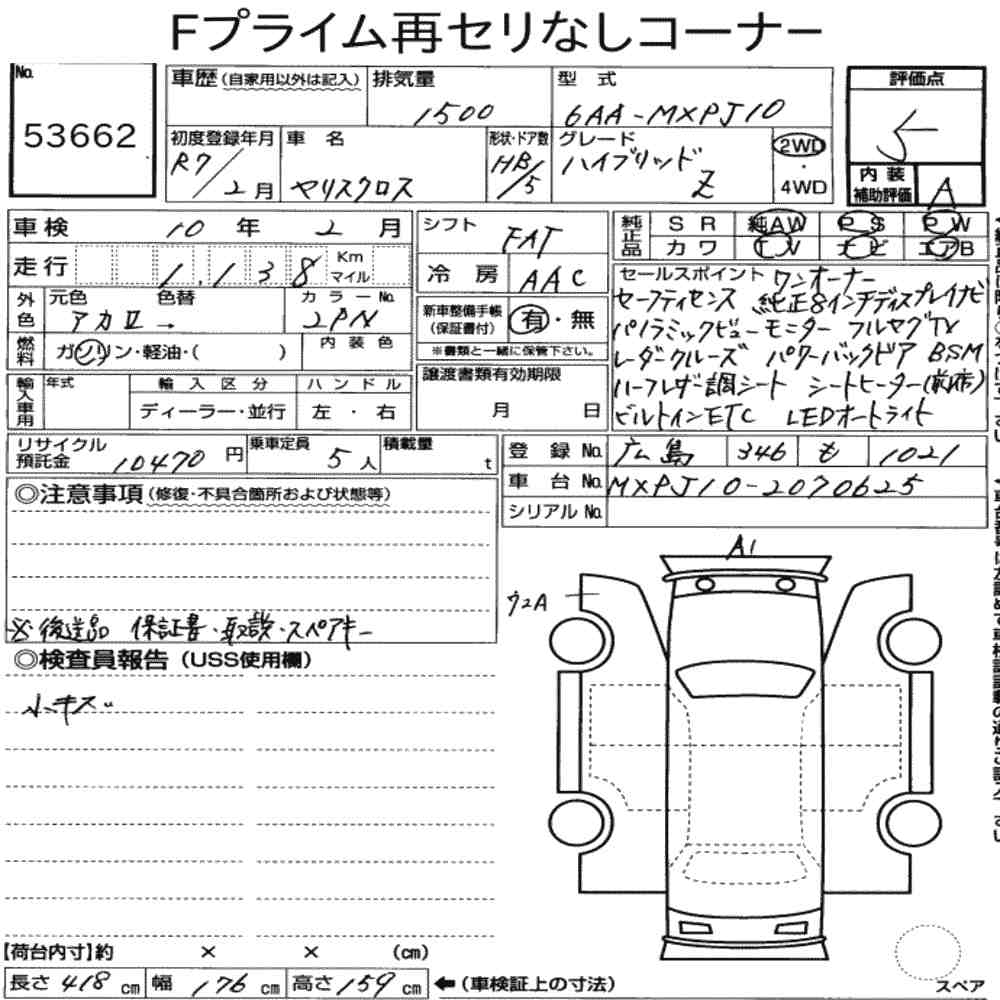 Fプライム再セリなしコーナー
No. 53662
車歴(自家用以外は記入) 排気量 1500 型式 6AA-MXPJ10
初度登録年月 R7/2月 車名 ヤリスクロス 形状・ドア数 HB/5 グレード ハイブリッド Z 2WD・4WD
評価点 5
内装補助評価 A
車検 10年 2月
走行 1,138 Km マイル
外色 元色 アカII 色替 → カラーNo. 2PN
燃料 ガソリン・軽油・( ) 内装色
輸入車用 年式 輸入区分 ディーラー・並行 ハンドル 左・右
シフト FAT
冷房 AAC
新車整備手帳(保証書付) 有・無
※書類と一緒に保管下さい。
譲渡書類有効期限 月 日
純正品 SR 純AW PS PW
カワ TV ナビ エアB
セールスポイント ワンオーナー
セーフティセンス 純正8インチディスプレイナビ
パノラミックビューモニター フルセグTV
レーダクルーズ パワーバックドア BSM
ハーフレザー調シート シートヒーター(前席)
ビルトインETC LEDオートライト
リサイクル預託金 10470円 乗車定員 5人 積載量 t
登録No. 広島 346 も 1021
車台No. MXPJ10-2070625
シリアルNo.
◎注意事項(修復・不具合箇所および状態等)
※後送品 保証書・取説・スペアキー
◎検査員報告(USS使用欄)
小キズ
A1
ウ2A
【荷台内寸】約 × × (cm)
長さ 418 cm 幅 176 cm 高さ 159 cm ←(車検証上の寸法)
スペア